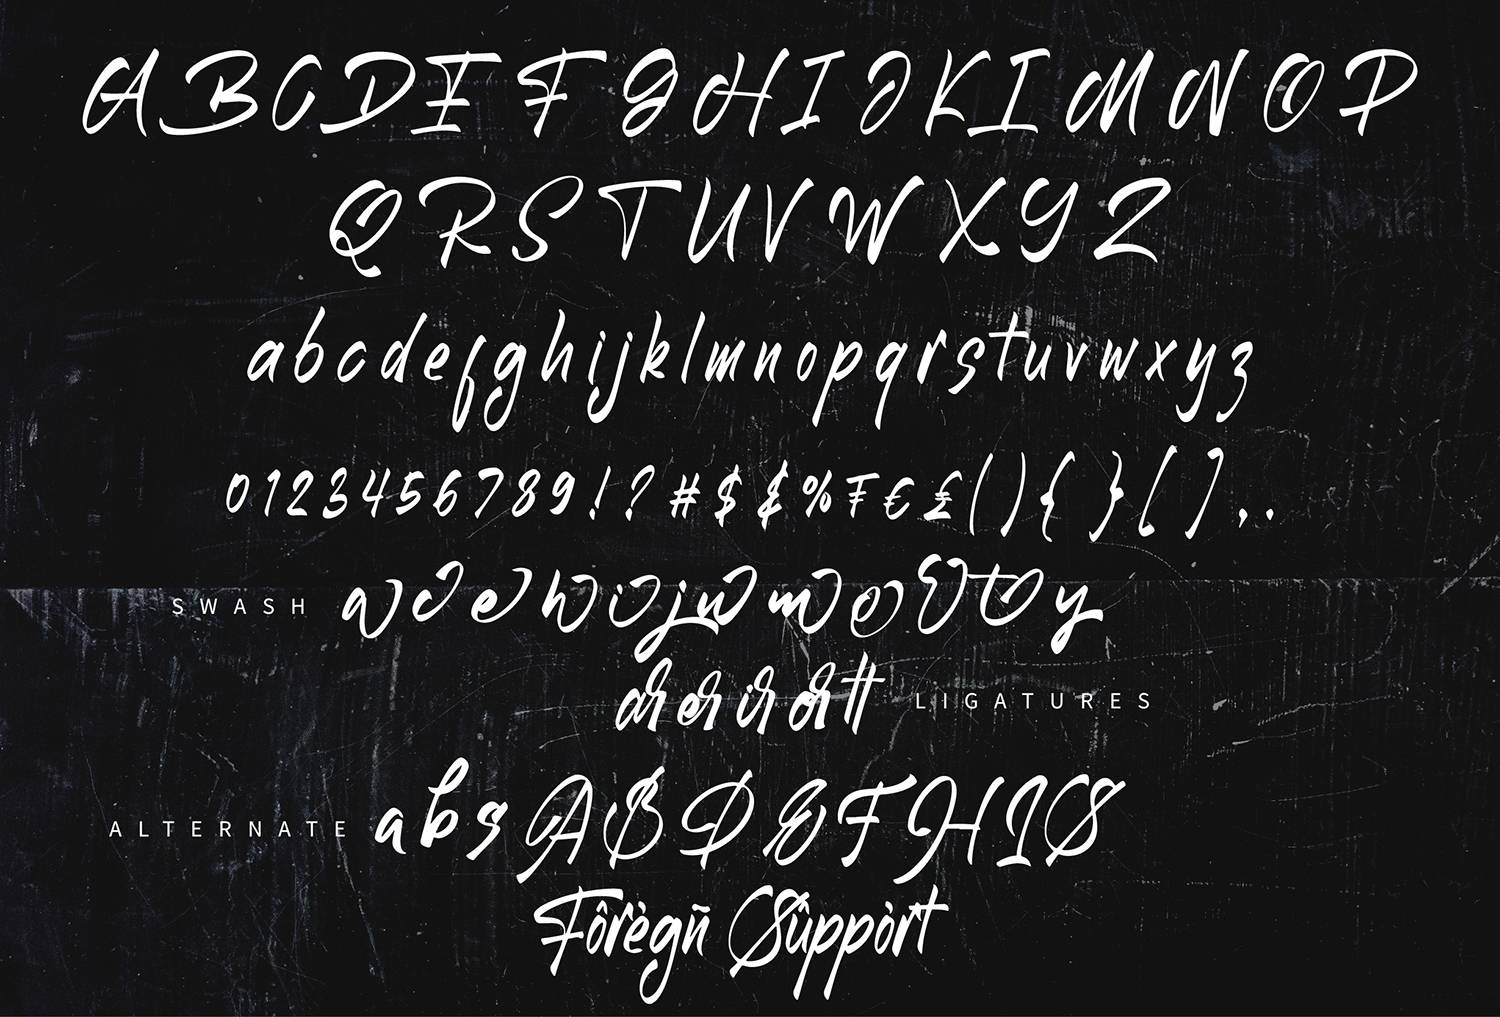 A B C D E F G H I J K L M N O P
Q R S T U V W X Y Z
a b c d e f g h i j k l m n o p q r s t u v w x y z
0 1 2 3 4 5 6 7 8 9 ! ? # $ & % ₮ € £ ( ) { } [ ] , .
SWASH a c e h i j u m o v t y
ar er ir or tt LIGATURES
ALTERNATE a b s A B D E F H I S
Fôrègñ Sûppòrt